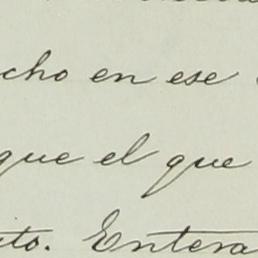 cho en ese
que el que
to. Entera